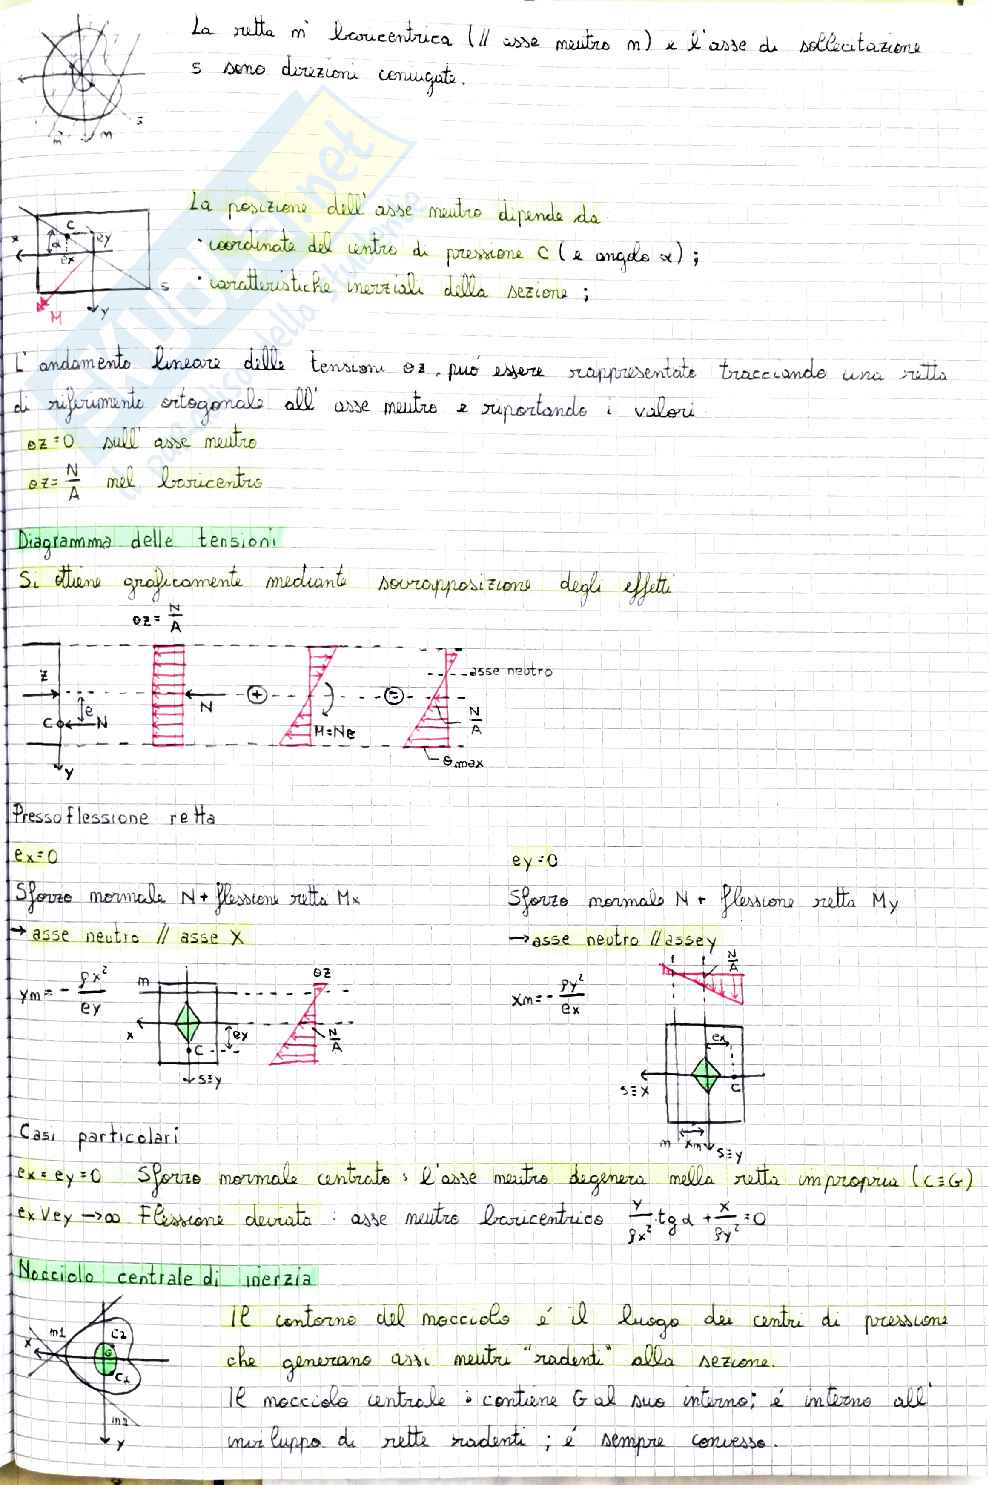 La retta n' baricentrica (// asse neutro n) e l'asse di sollecitazione
s sono direzioni coniugate.
n' n s
La posizione dell'asse neutro dipende da
• coordinate del centro di pressione C (e angolo α);
• caratteristiche inerziali della sezione;
x C α ey ex s M y
L'andamento lineare delle tensioni σz, può essere rappresentato tracciando una retta
di riferimento ortogonale all'asse neutro e riportando i valori
σz=0 sull'asse neutro
σz= N/A nel baricentro
Diagramma delle tensioni
Si ottiene graficamente mediante sovrapposizione degli effetti
σz= N/A
z e C N y N + M=Ne = asse neutro N/A σmax
Pressoflessione retta
ex=0
ey=0
Sforzo normale N + flessione retta Mx
Sforzo normale N + flessione retta My
→ asse neutro // asse X
→ asse neutro // asse y
yn = - ρx²/ey
n x C ey s≡y σz N/A
xn = - ρy²/ex
N/A ex C s≡x n xn s≡y
Casi particolari
ex=ey=0 Sforzo normale centrato: l'asse neutro degenera nella retta impropria (C≡G)
ex V ey → ∞ Flessione deviata: asse neutro baricentrico y/ρx² · tg α + x/ρy² = 0
Nocciolo centrale di inerzia
Il contorno del nocciolo é il luogo dei centri di pressione
che generano assi neutri "radenti" alla sezione.
Il nocciolo centrale: contiene G al suo interno; é interno all'
inviluppo di rette radenti; é sempre convesso.
n1 x C2 G C1 n2 y
SKUOLA.net
il paradiso dello studente